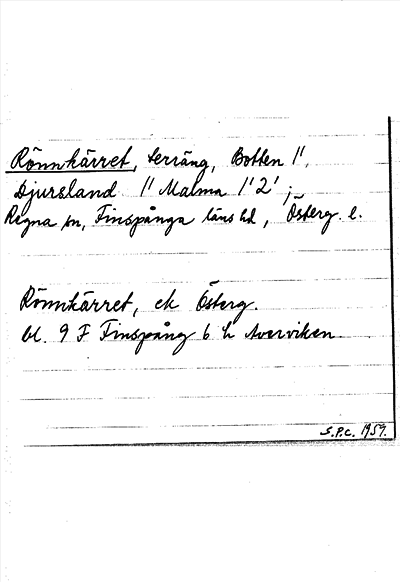 Rönnkärret, terräng, Botten 1',
Djursland 1' Malma 1'2';
Regna sn, Finspånga läns hd, Österg. l.
Rönnkärret, ek Österg.
bl. 9 F Finspång 6 h Averviken
S.P.C. 1957.